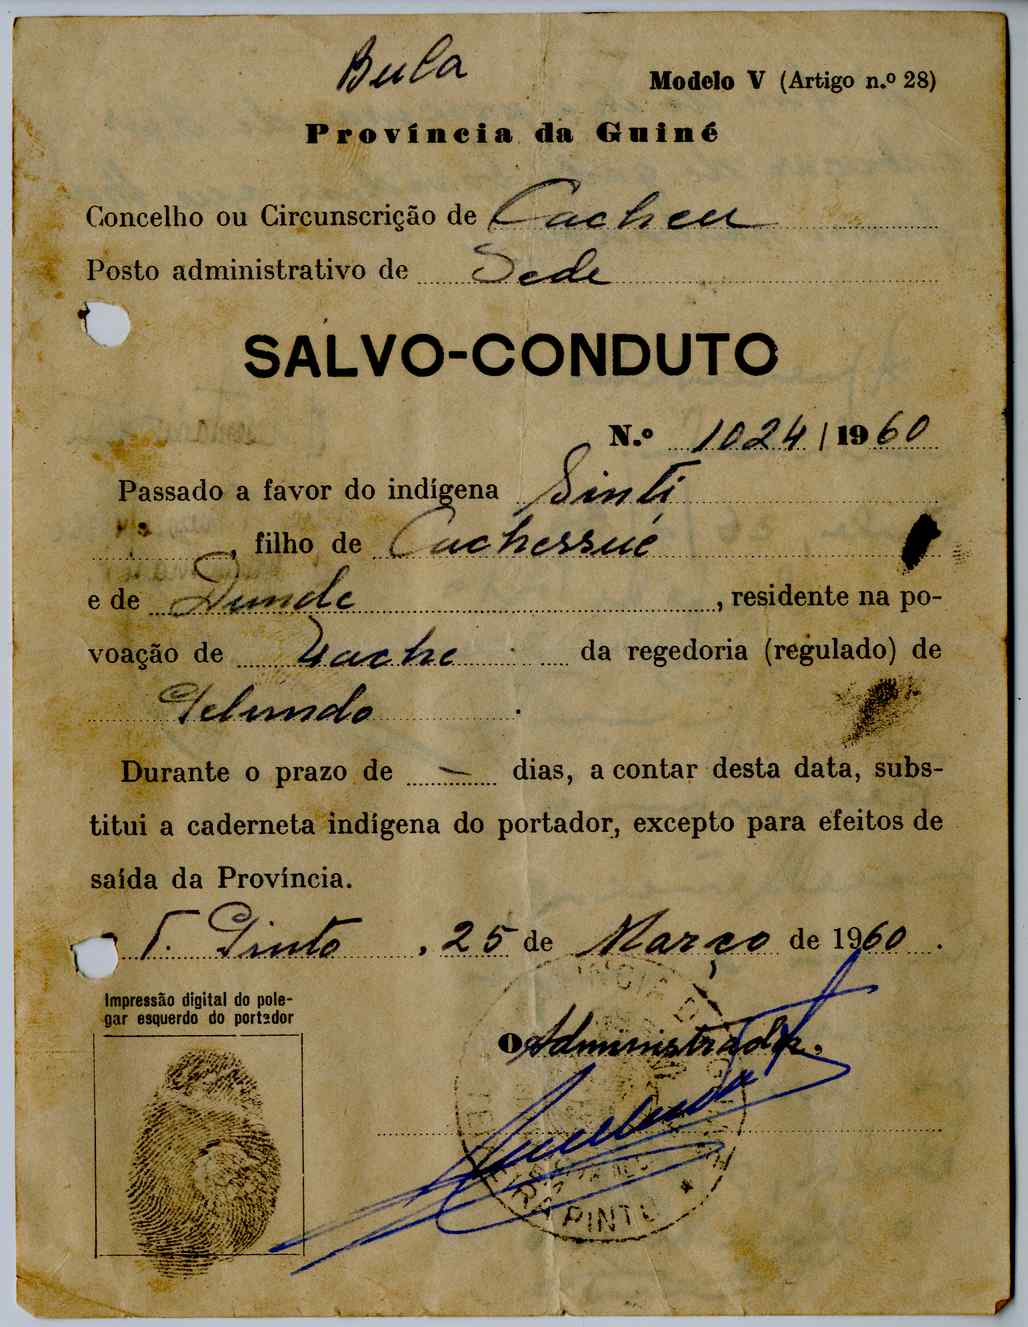 Bula
Modelo V (Artigo n.º 28)
Província da Guiné
Concelho ou Circunscrição de Cacheu
Posto administrativo de Sede
SALVO-CONDUTO
N.º 1024/1960
Passado a favor do indígena Sinti
, filho de Cachessué
e de Dunde, residente na po-
voação de da regedoria (regulado) de
Pelundo.
Durante o prazo de — dias, a contar desta data, subs-
titui a caderneta indígena do portador, excepto para efeitos de
saída da Província.
T. Pinto, 25 de Março de 1960.
Impressão digital do pole-
gar esquerdo do portador
O Administrador,
EIRA PINTO